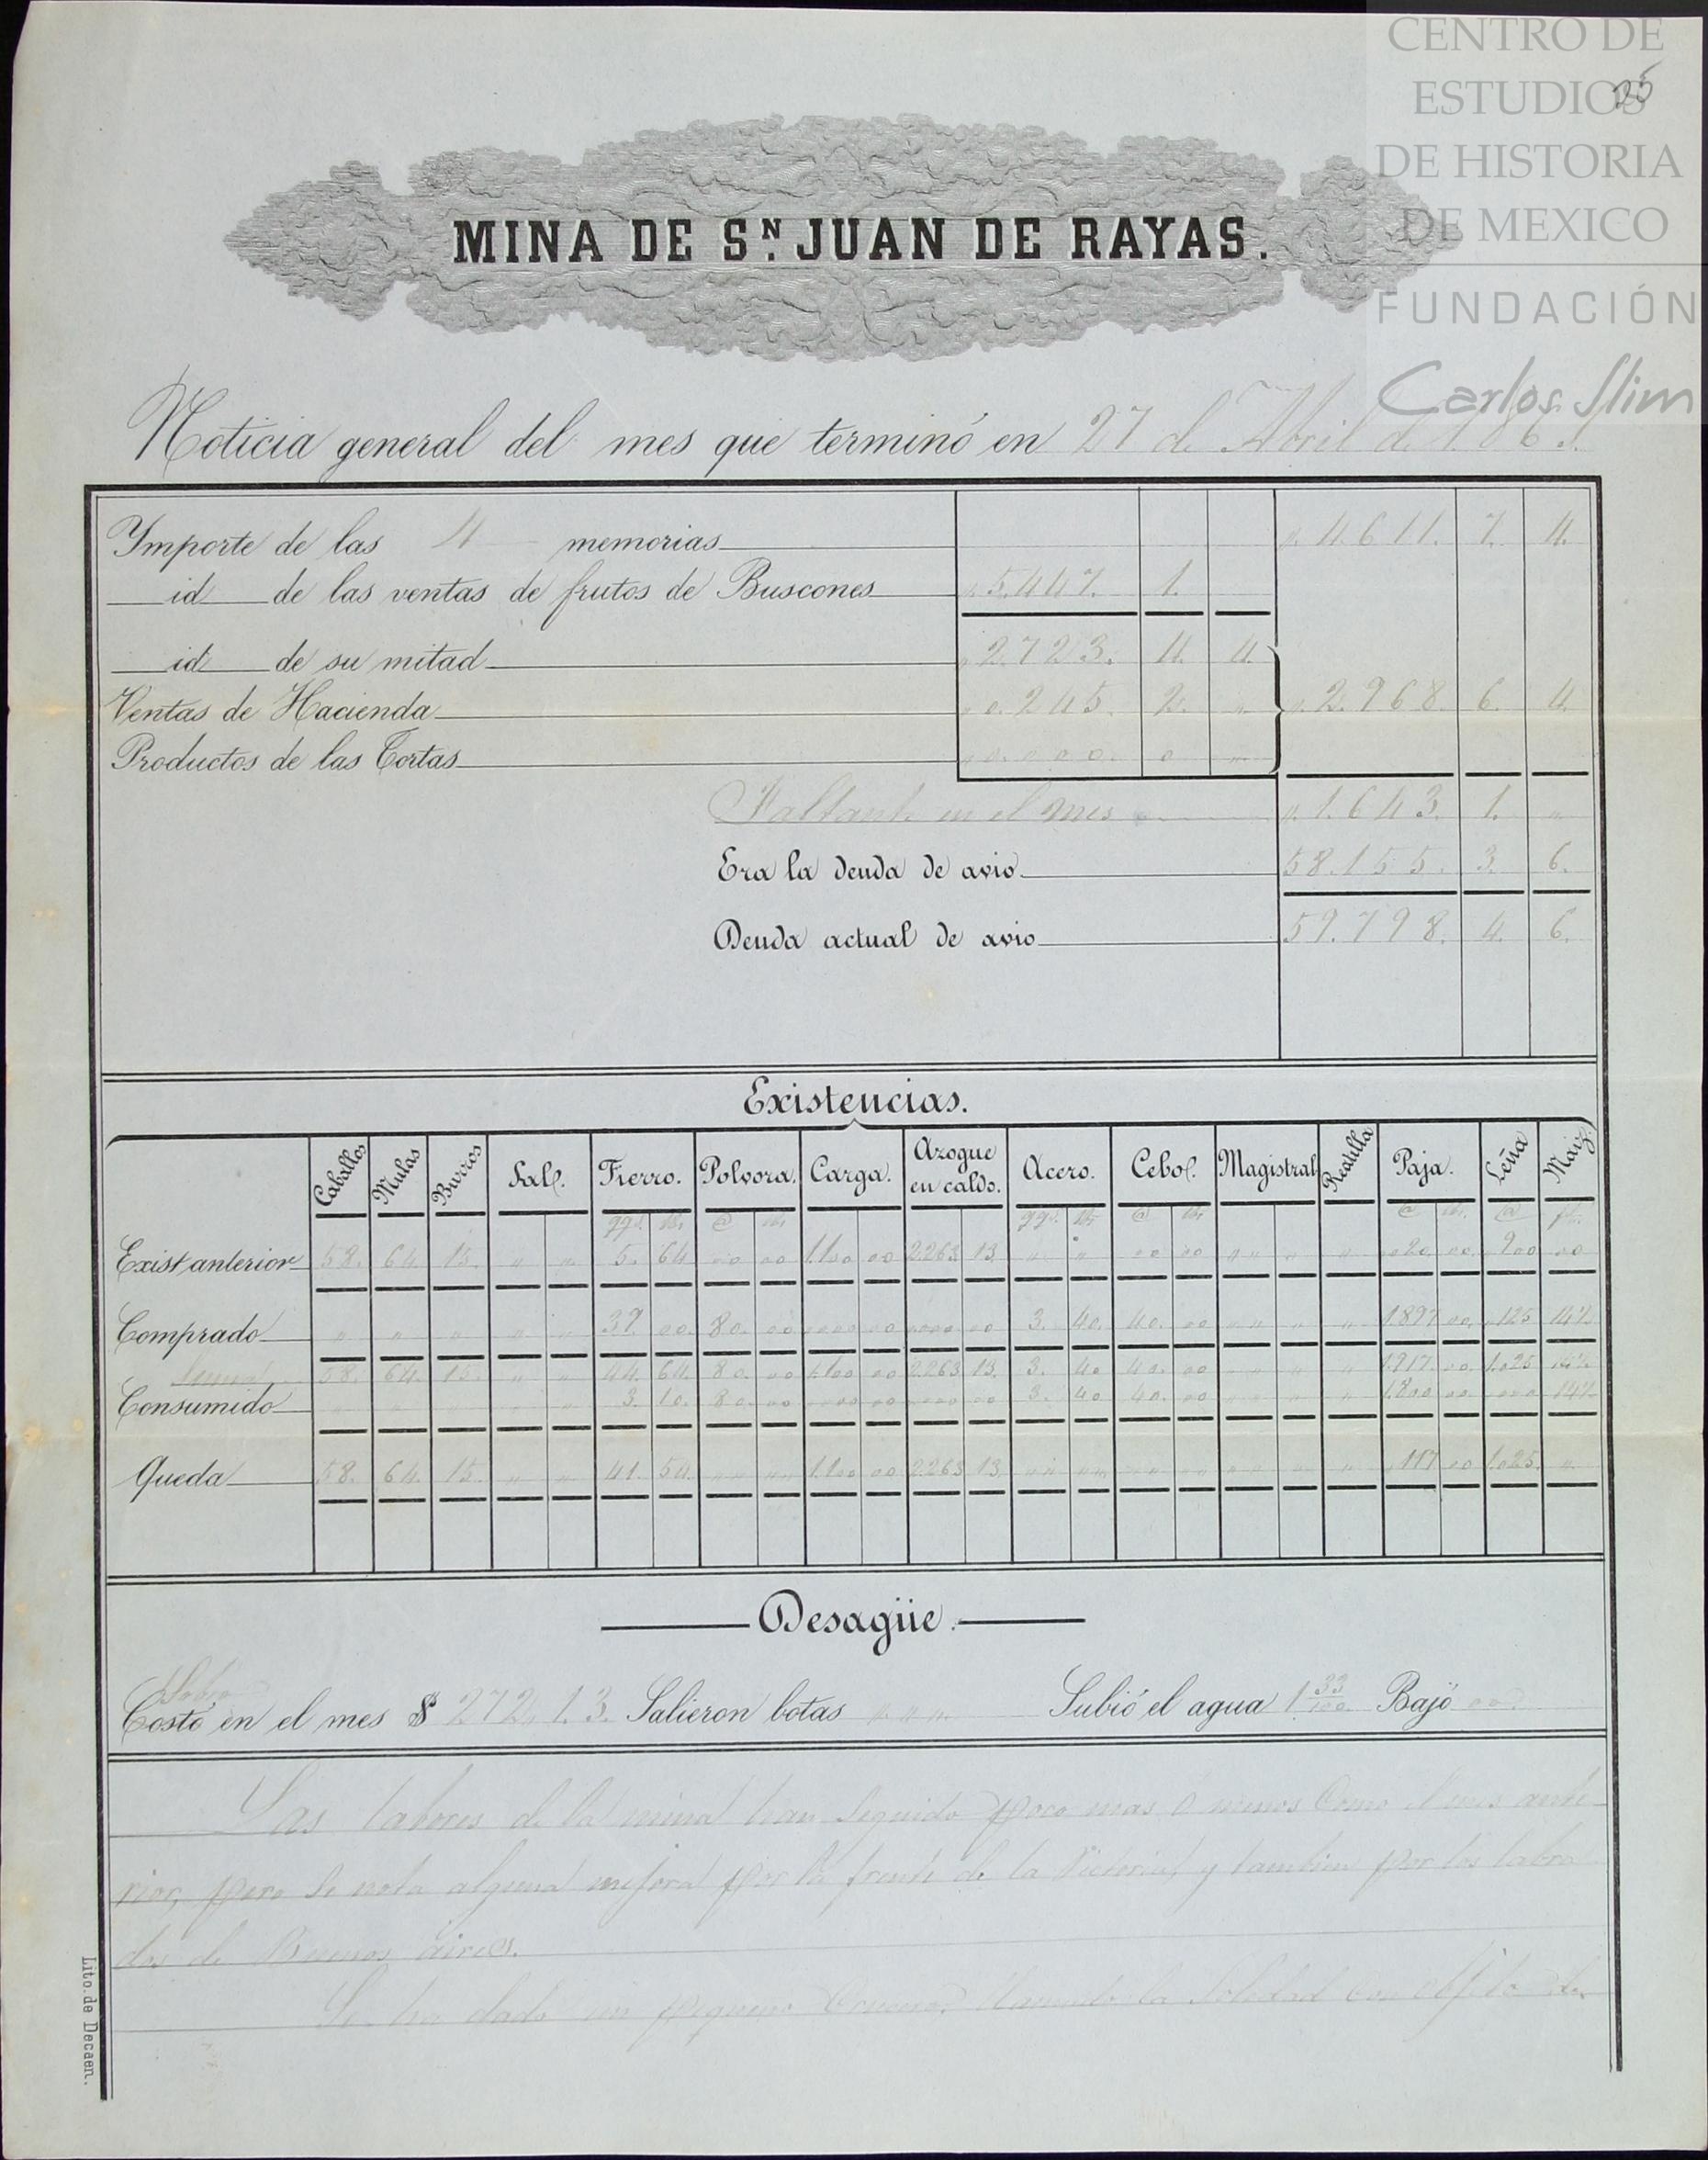 CENTRO DE
ESTUDIOS
DE HISTORIA
DE MEXICO
FUNDACIÓN
Carlos Slim
MINA DE Sᴺ. JUAN DE RAYAS.
Noticia general del mes que terminó en 27 de Abril de 186
Ymporte de las 4 memorias 4611. 7. 4.
id de las ventas de frutos de Buscones 5.447. 1.
id de su mitad 2723. 4. 4.
Ventas de Hacienda 0.245. 2. " 2.968. 6. 4.
Productos de las Tortas 0.000. 0 "
Faltante en el mes 1.643. 1. "
Era la deuda de avio 58.155. 3. 6.
Deuda actual de avio 59.798. 4. 6.
Existencias.
Caballos Mulas Burros Sal. Fierro. Polvora. Carga. Azogue en caldo. Acero. Cebo. Magistral Rialilla Paja. Leña Maiz.
qqs. lbs. @ lbs. qqs. lbs. @ lbs. @ lbs. @
Exist anterior 58. 64. 15. " " 5. 64 00 00 1.100 00 2263 13 " " 00 00 " " " 20. 00. 900 00
Comprado " " " " " 39. 00. 80. 00 0000 00 0000 00 3. 40. 40. 00 " " " 1897 00. 125 147.
Suma 58. 64. 15. " " 44. 64. 80. 00 1.100 00 2263 13. 3. 40 40. 00 " " " 1.917. 00. 1.025 147
Consumido 3. 10. 80. 00 0000 00 0000 00 3. 40 40. 00 " 1.800 00. 000 147
Queda 58. 64. 15. " " 41. 54. " " 1.100 00 2263 13. " " " " " " " 117 00 1.025. "
Desagüe.
Costó en el mes $ 272,, 1. 3. Salieron botas " " " Subió el agua 1 33/100 Bajó 00
Las labores de la mina han seguido poco mas ó menos como el mes ante-
rior, pero se nota alguna mejora por la frente de la Victoria, y tambien por los labra
dos de Buenos aires.
Se ha dado un pequeño llamado la Soledad con objeto de
Lito. de Decaen.